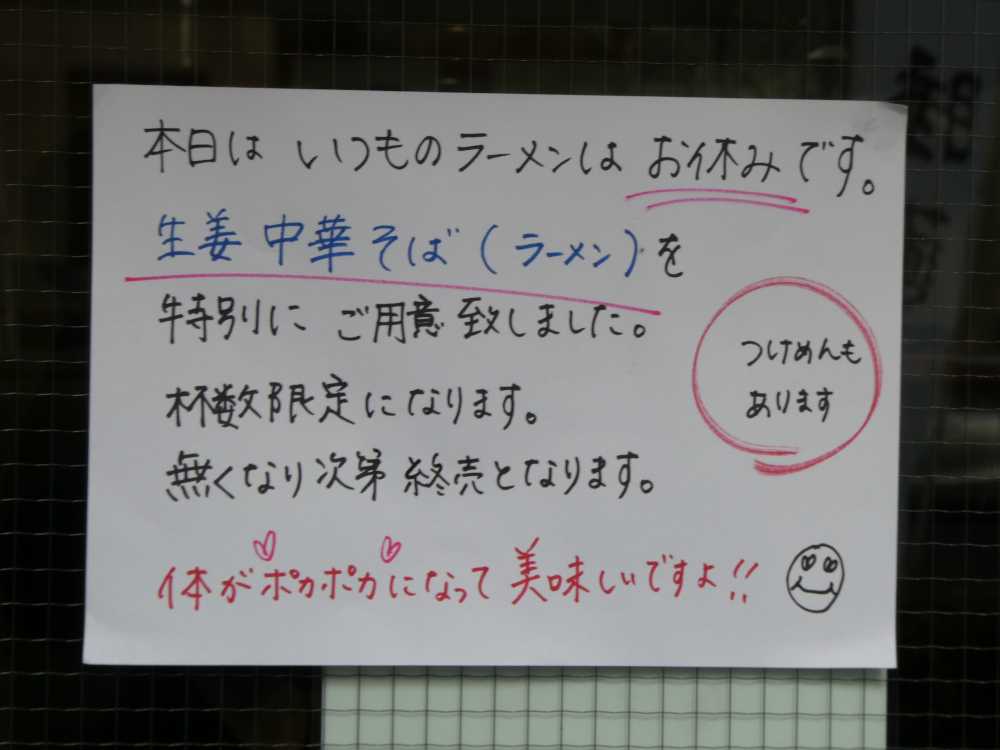 本日は いつものラーメンは お休みです。
生姜 中華そば(ラーメン)を
特別に ご用意致しました。
つけめんも
あります
杯数限定になります。
無くなり次第 終売となります。
体がポカポカになって 美味しいですよ!!